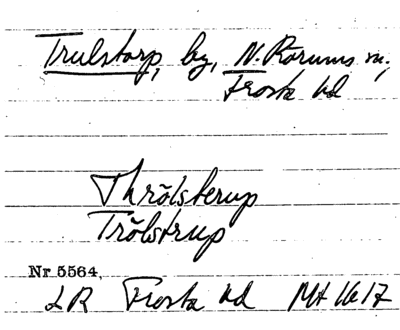 Trulstorp, by, N. Rörums sn,
Frosta hd
Thrölsterup
Trölstrup
Nr 5564,
LR Frosta hd Mt 1617